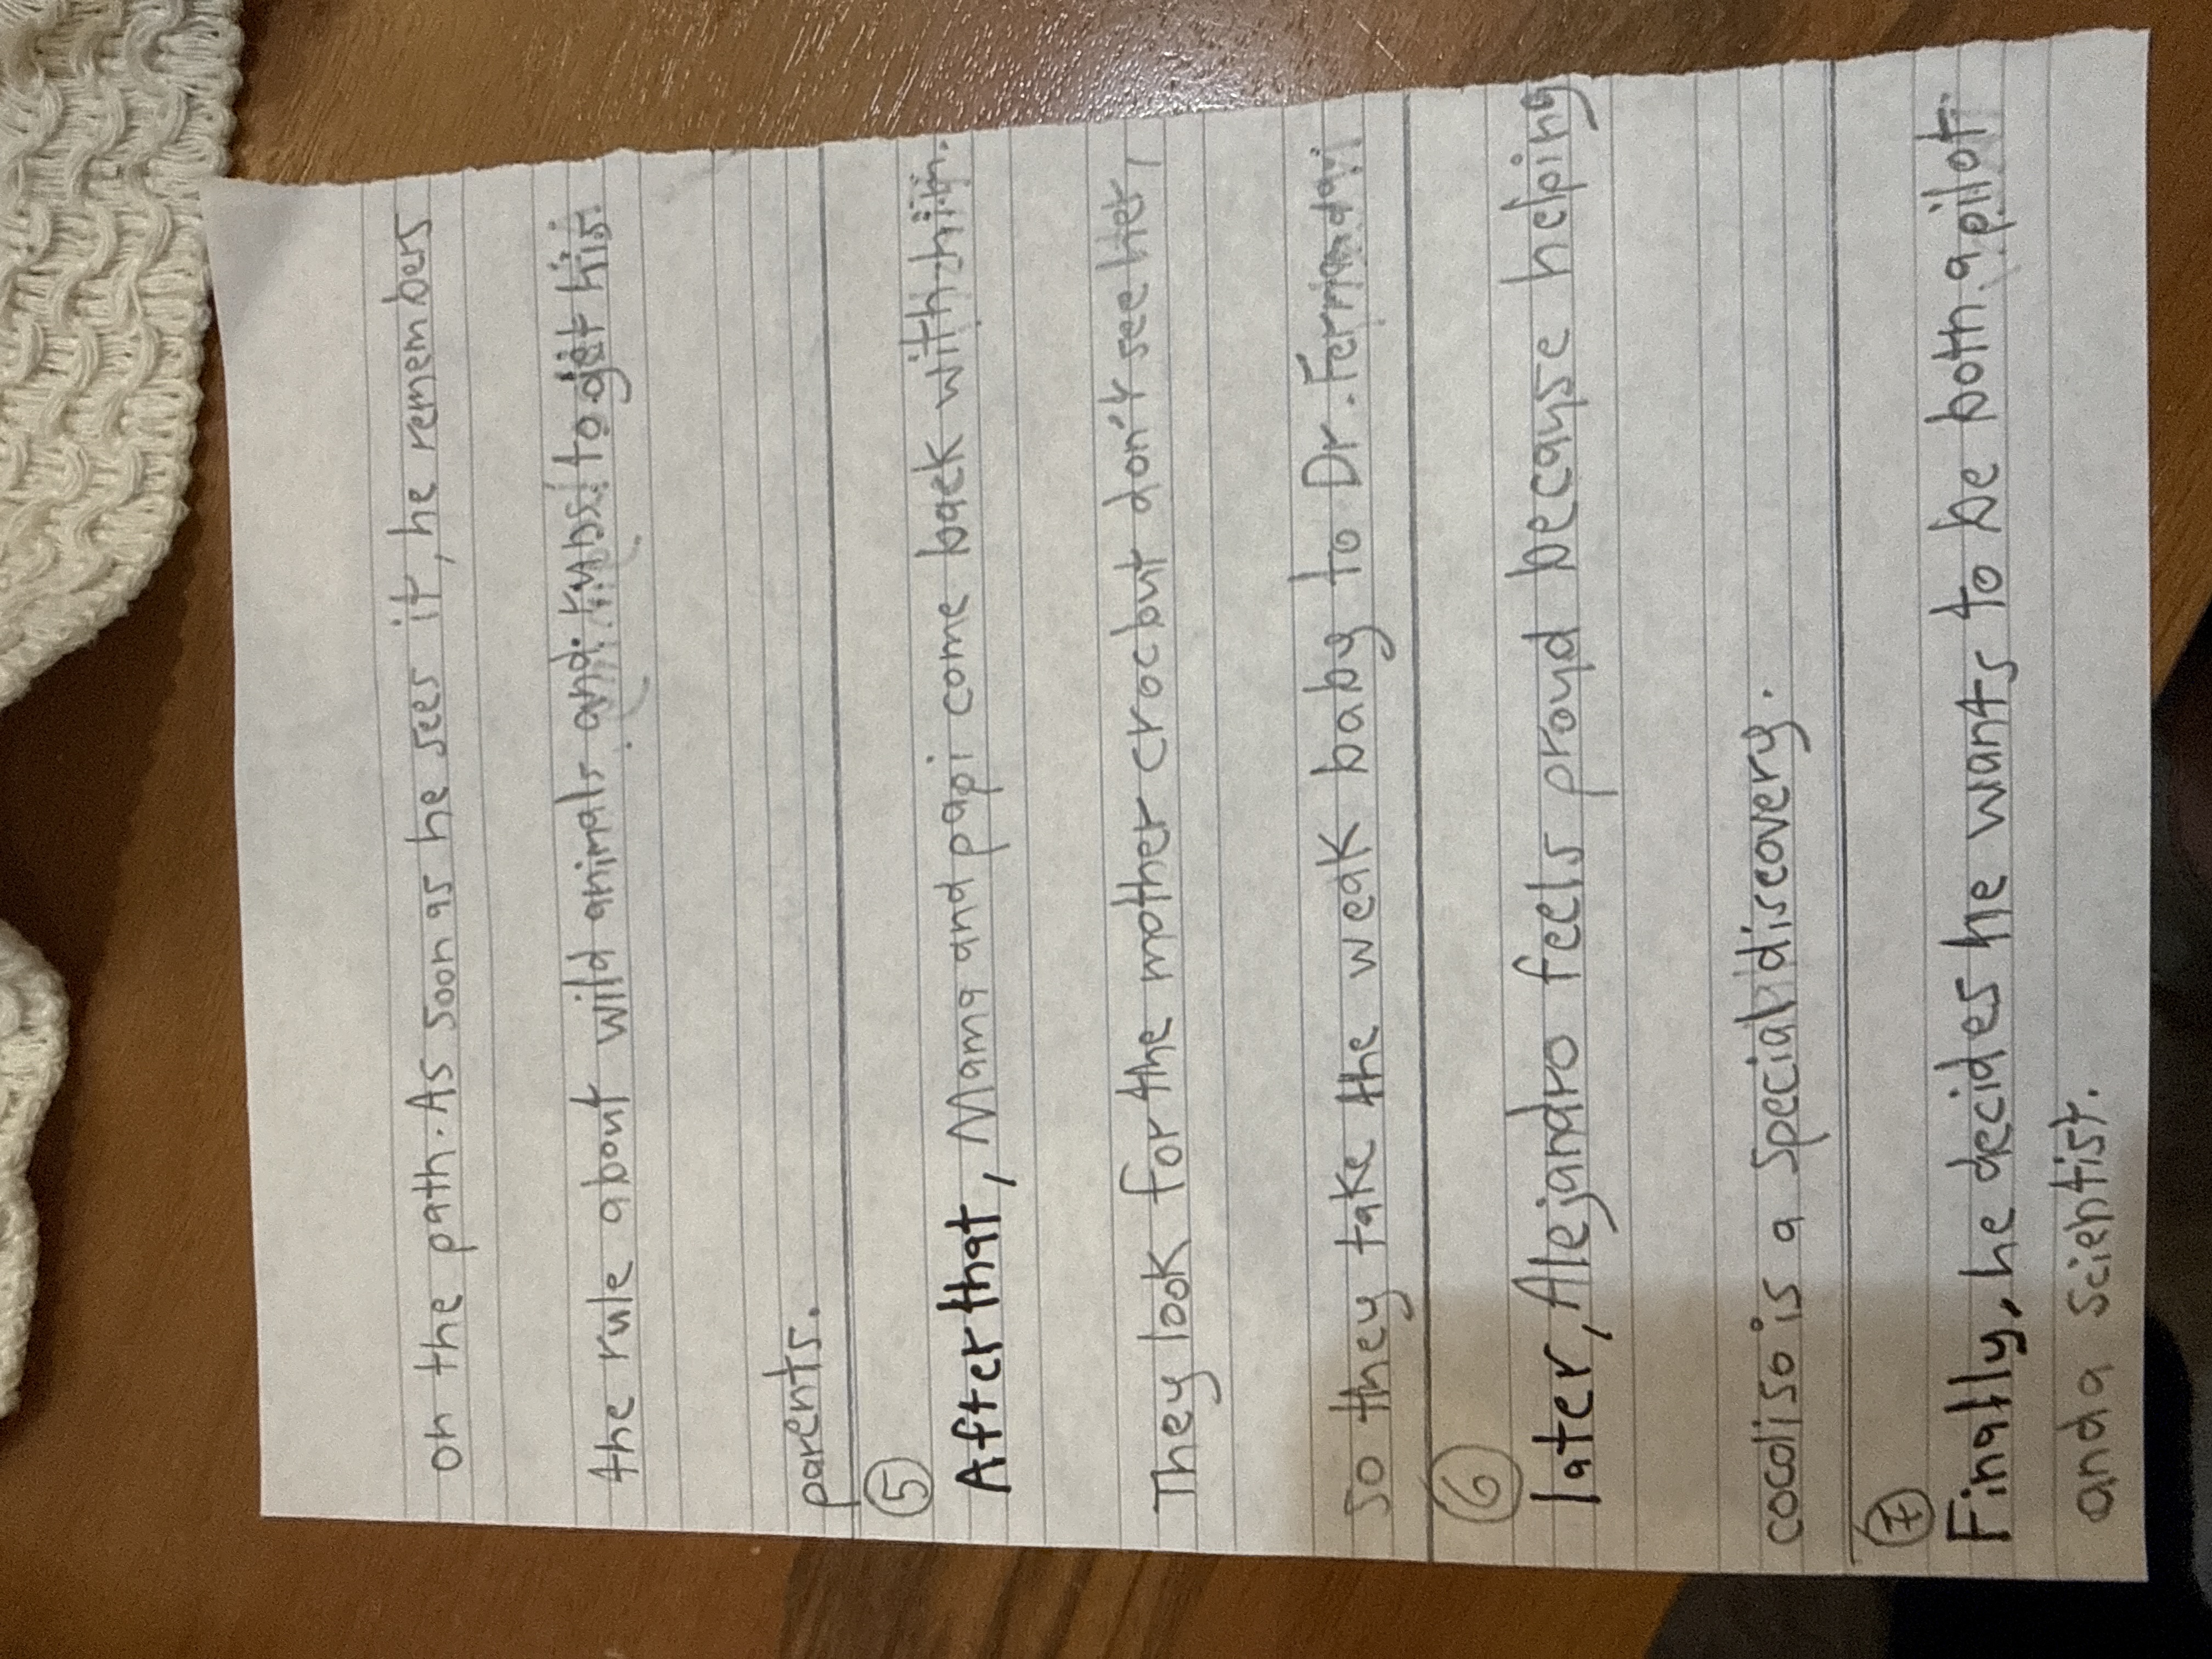 on the path. As soon as he sees it, he remembers
the rule about wild animals and runs to get his
parents.
5
After that, Mama and papi come back with him.
They look for the mother croc but don't see her,
so they take the weak baby to Dr.
6
later, Alejandro feels proud because helping
cocodiso is a special discovery.
7
Finally, he decides he wants to be both a pilot
and a scientist.